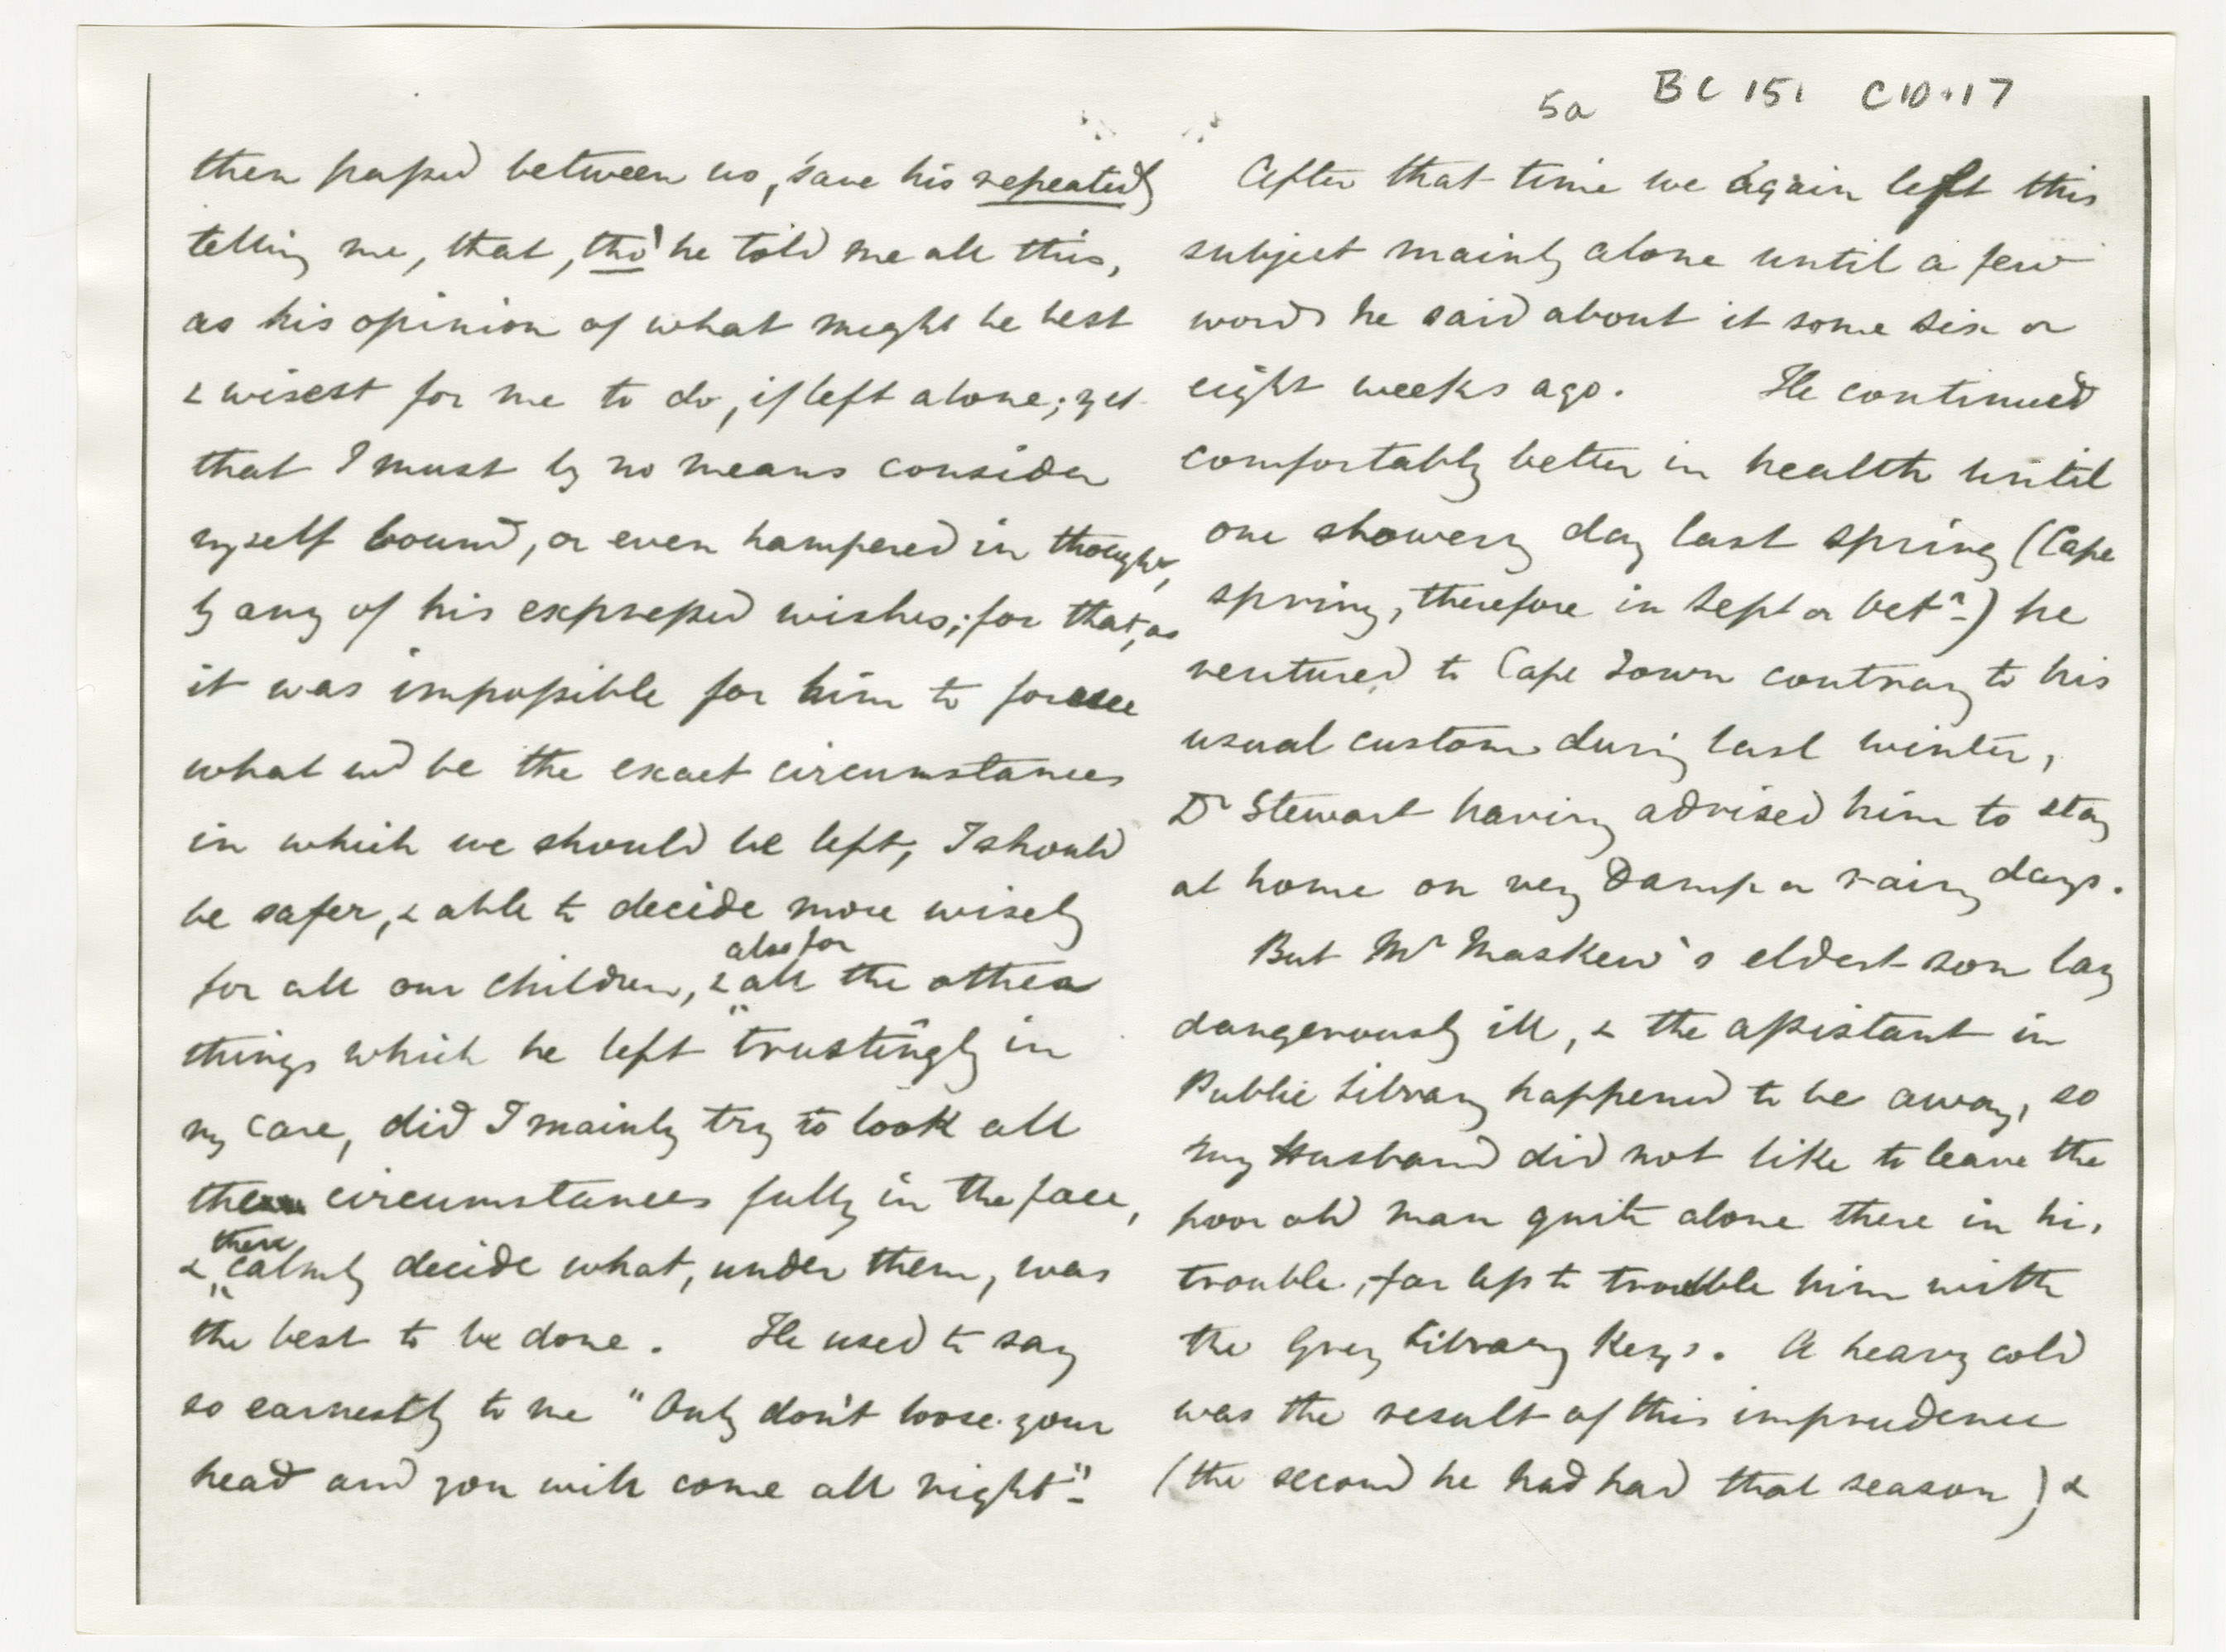 5a BC 151 C10.17
then passed between us, save his repeatedly
telling me, that, tho' he told me all this,
as his opinion of what might be best
& wisest for me to do, if left alone; yet
that I must by no means consider
myself bound, or even hampered in thought,
by any of his expressed wishes; for that, as
it was impossible for him to foresee
what wd be the exact circumstances
in which we should be left, I should
be safer, & able to decide more wisely
also for
for all our children, & all the other
things which he left trustingly in
my care, did I mainly try to look all
the circumstances fully in the face,
then
& calmly decide what, under them, was
the best to be done. He used to say
so earnestly to me "Only don't loose your
head and you will come all right".
After that time we again left this
subject mainly alone until a few
words he said about it some six or
eight weeks ago. He continued
comfortably better in health until
one showery day last spring (Cape
spring, therefore in Sept or Octr) he
ventured to Cape Town contrary to his
usual custom during last winter,
Dr Stewart having advised him to stay
at home on very damp or rainy days.
But Mr Maskew's eldest son lay
dangerously ill, & the assistant in
Public Library happened to be away, so
my Husband did not like to leave the
poor old man quite alone there in his
trouble, far less to trouble him with
the Grey Library Keys. A heavy cold
was the result of this imprudence
(the second he had had that season) &